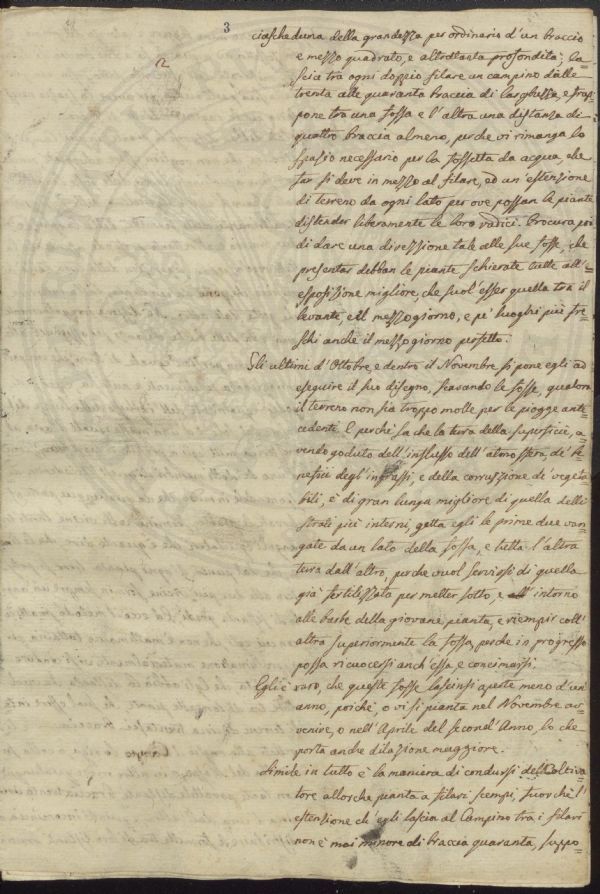 3
ciascheduna della grandezza per ordinario d'un braccio
e mezzo quadrato, e altrettanta profondità: la=
scia tra ogni doppio filare un campino dalle
trenta alle quaranta braccia di larghezza, e frap=
pone tra una fossa e l'altra una distanza di
quattro braccia almeno, perche vi rimanga lo
spazio necessario per la fossetta da acqua, che
far si deve in mezzo al filare, ed un'estenzione
di terreno da ogni lato per ove possan le piante
distender liberamente le loro radici. Procura poi
di dare una direzzione tale alle sue fosse, che
presentar debban le piante schierate tutte all'
esposizione migliore, che suol'esser quella tra il
levante, e il mezzogiorno, e pe' luoghi più fre=
schi anche il mezzogiorno perfetto.
Gli ultimi d'Ottobre, e dentro il Novembre si pone egli ad
eseguire il suo disegno, scavando le fosse, qualora
il terreno non sia troppo molle per le piogge ante=
cedenti. E perchè sa che la terra della superficie, a=
vendo goduto dell'influsso dell'atmosfera, de' be
neficii degl'ingrassi, e della corruzzione de' vegeta
bili, è di gran lunga migliore di quella delli
strati più interni, getta egli le prime due van=
gate da un lato della fossa, e tutta l'altra
terra dall'altro, perche vuol servirsi di quella
già fertilizzata per metter sotto, e all'intorno
alle barbe della giovane pianta, e riempir coll'
altra superiormente la fossa, perche in progresso
possa ricuocersi anch'essa e concimarsi.
Egli è raro, che queste fosse lascinsi aperte meno d'un
anno, poichè, o vi si pianta nel Novembre av=
venire, o nell'Aprile del second'Anno, lo che
porta anche dilazione maggiore.
Simile in tutto è la maniera di condursi del Coltiva=
tore allorche pianta a filari scempi, fuorchè l'
estenzione ch'egli lascia al Campino tra i filari
non è mai minore di braccia quaranta, suppo=